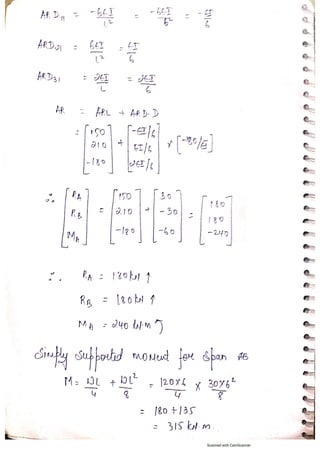 ARD11 = -6EI/L² = -6EI/6² = -EI/6
ARD21 = 6EI/L² = EI/6
ARD31 = 2EI/L = 2EI/6
AR = ARL + ARD·D
= [150 210 -180] + [-EI/6 EI/6 2EI/6] × [-180/EI]
∴ [RA RB MA] = [150 210 -180] + [30 -30 -60] = [180 180 -240]
∴ RA = 180 kN ↑
RB = 180 kN ↑
MA = 240 kN·m
Simply Supported moment for Span AB
M = WL/4 + WL²/8 = 120×6/4 × 30×6²/8
= 180 + 135
= 315 kN m.
Scanned with CamScanner